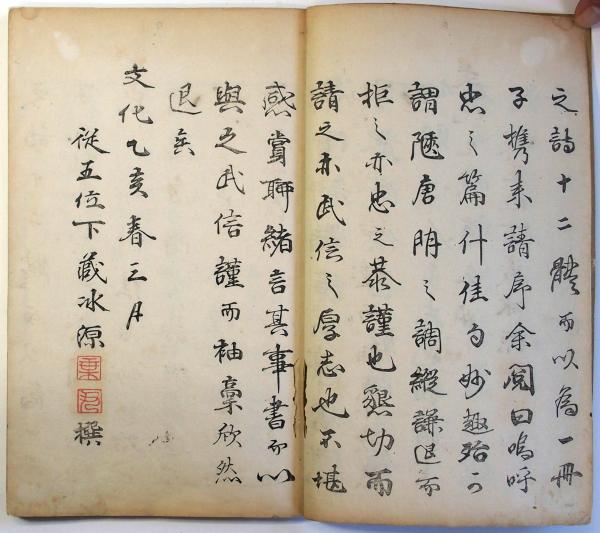 之詩十二體而以為一冊
子携来請序余閲曰嗚呼
忠之篇什佳句妙趣殆可
謂陋唐明之調縱謙退而
拒之亦忠之恭謹也懇切而
請之亦武信之厚志也不堪
感賞聊緒言其事書而以
與之武信謹而袖稾欣然
退矣
文化乙亥春三月
從五位下藏氷源撰